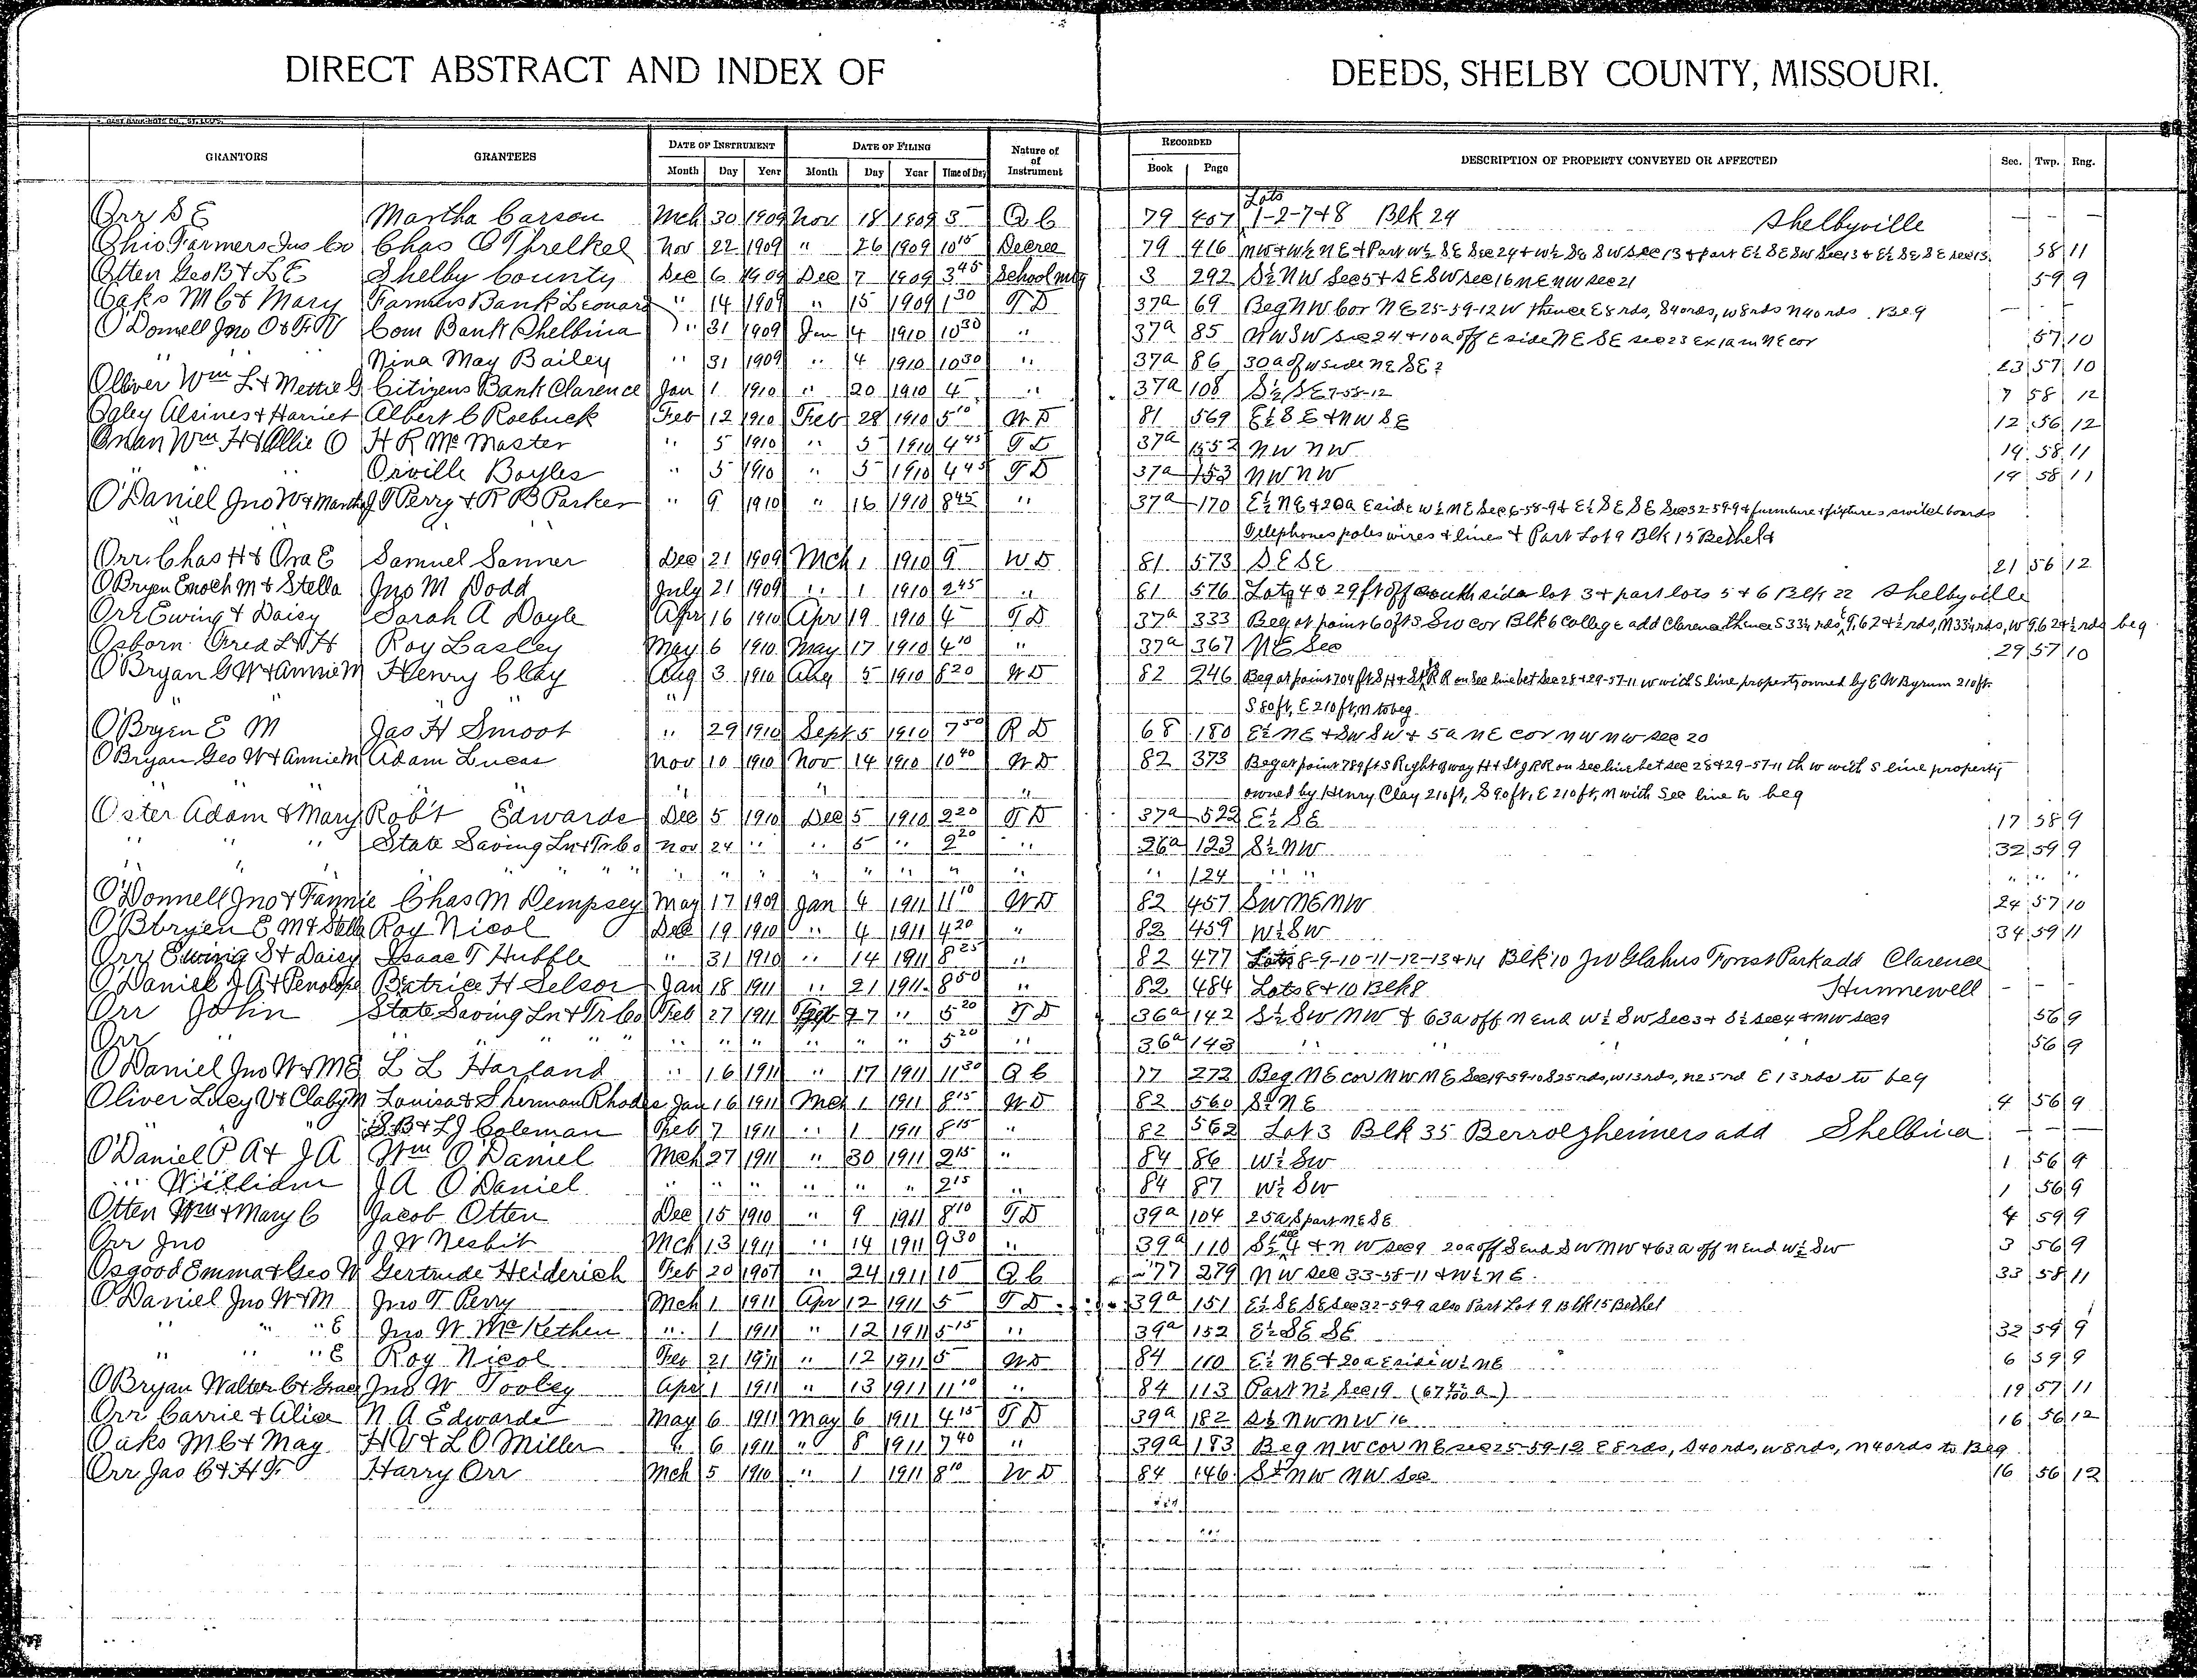 DIRECT ABSTRACT AND INDEX OF DEEDS, SHELBY COUNTY, MISSOURI.
GRANTORS GRANTEES DATE OF INSTRUMENT DATE OF FILING Nature of of Instrument RECORDED DESCRIPTION OF PROPERTY CONVEYED OR AFFECTED Sec. Twp. Rng.
Month Day Year Month Day Year Time of Day Book Page
Lots
Orr S E Martha Carson Mch 30 1909 Nov 18 1909 3 Q C 79 407 1-2-7+8 Blk 24 Shelbyville — — —
Ohio Farmers Ins Co Chas O Threlkel Nov 22 1909 " 26 1909 10 15 Decree 79 416 NW + W½ NE + Part W½ SE Sec 24 + W½ SE SW Sec 13 + part E½ SE SW Sec 13 + E½ SE SE Sec 13 58 11
Otten Geo B + L E Shelby County Dec 6 1909 Dec 7 1909 3 45 School mtg 3 292 S½ NW Sec 5 + SE SW Sec 16 NE NW Sec 21 59 9
Oaks M C + Mary Farmers Bank Leonard " 14 1909 " 15 1909 1 30 T D 37a 69 Beg NW Cor NE 25-59-12 W thence E 8 rds, S 40 rds, W 8 rds N 40 rds Beg — — —
O'Donnell Jno O + F Com Bank Shelbina " 31 1909 Jan 4 1910 10 30 " 37a 85 NW SW Sec 24 + 10a off E side NE SE Sec 23 Ex 1a in NE cor 57 10
" " Nina May Bailey " 31 1909 " 4 1910 10 30 " 37a 86 30a off W side NE SE 23 57 10
Olliver Wm L + Mettie G Citizens Bank Clarence Jan 1 1910 " 20 1910 4 " 37a 108 S½ SE 7-58-12 7 58 12
Ogley Alsines + Harriet Albert C Roebuck Feb 12 1910 Feb 28 1910 5 10 W D 81 569 E½ SE + NW SE 12 56 12
Wm H + Ollie O H R McMaster " 5 1910 " 5 1910 4 45 T D 37a 152 NW NW 19 58 11
" " Orville Boyles " 5 1910 " 5 1910 4 45 T D 37a 153 NW NW 19 58 11
O'Daniel Jno W + Martha J T Perry + R B Parker " 9 1910 " 16 1910 8 45 " 37a 170 E½ NE + 20a E side W½ NE Sec 6-58-9 + E½ SE SE Sec 32-59-9 + furniture + fixtures switch boards
" Telephones poles wires + lines + Part Lot 9 Blk 15 Bethel
Orr Chas H + Ora E Samuel Sanner Dec 21 1909 Mch 1 1910 9 W D 81 573 SE SE 21 56 12
O'Bryen Enoch M + Stella Jno M Dodd July 21 1909 " 1 1910 2 45 " 81 576 Lots 4 + 29 ft off south side lot 3 + part lots 5 + 6 Blk 22 Shelbyville
Orr Ewing + Daisy Sarah A Doyle Apr 16 1910 Apr 19 1910 4 T D 37a 333 Beg at point 60 ft S SW cor Blk 6 College add Clarence thence S 33½ rds, E 9.62 4½ rds, N 33½ rds, W 9.62 4½ rds beg
Osborn Orred L + H Roy Lasley May 6 1910 May 17 1910 4 10 " 37a 367 NE Sec 29 57 10
O'Bryan G W + Annie M Henry Clay Aug 3 1910 Aug 5 1910 8 20 W D 82 246 Beg at point 704 ft S H + St J R R on Sec line bet Sec 28 + 29-57-11 W with S line property owned by E W Byrum 210 ft.
" S 80 ft, E 210 ft, N to beg
O'Bryen E M Jas H Smoot " 29 1910 Sept 5 1910 7 50 R D 68 180 E½ NE + SW SW + 5a NE cor NW NW Sec 20
O'Bryan Geo W + Annie M Adam Lucas Nov 10 1910 Nov 14 1910 10 40 W D 82 373 Beg at point 789 ft S Right of way H + St J RR on sec line bet sec 28 + 29-57-11 th W with S line property
" " " " owned by Henry Clay 210 ft, S 90 ft, E 210 ft, N with Sec line to beg
Oster Adam + Mary Robt Edwards Dec 5 1910 Dec 5 1910 2 20 T D 37a 522 E½ SE 17 58 9
" " " State Saving Ln + Tr Co Nov 24 " " 5 " 2 20 " 36a 123 S½ NW 32 59 9
" " " " " " " " " " " " " 124 " " " " "
O'Donnell Jno + Fannie Chas M Dempsey May 17 1909 Jan 4 1911 11 10 W D 82 457 SW NE NW 24 57 10
O'Bryen E M + Stella Roy Nicol Dec 19 1910 " 4 1911 4 20 " 82 459 W½ SW 34 59 11
Orr Ewing S + Daisy Isaac T Huffle " 31 1910 " 14 1911 8 25 " 82 477 Lots 8-9-10-11-12-13+14 Blk 10 Forest Park add Clarence
O'Daniel J A + Penelope Beatrice H Selsor Jan 18 1911 " 21 1911 8 50 " 82 484 Lots 8 + 10 Blk 8 Hunnewell — — —
Orr John State Saving Ln + Tr Co Feb 27 1911 Feb 27 " 5 20 T D 36a 142 S½ SW NW + 63a off N end W½ SW Sec 3 + S½ Sec 4 + NW Sec 9 56 9
Orr " " " " " " " " " " 5 20 " 36a 143 " " " " 56 9
O'Daniel Jno W + M E L L Harland " 16 1911 " 17 1911 11 30 Q C 77 272 Beg NE cor NW NE Sec 19-59-10 S 25 rds, W 13 rds, N 25 rd E 13 rds to beg
Oliver Lucy V + Claby M Louisa + Sherman Rhodes Jan 16 1911 Mch 1 1911 8 15 W D 82 560 S½ NE 4 56 9
" " S B + L J Coleman Feb 7 1911 " 1 1911 8 15 " 82 562 Lot 3 Blk 35 Berrolzheimers add Shelbina — — —
O'Daniel P A + J A Wm O'Daniel Mch 27 1911 " 30 1911 2 15 " 84 86 W½ SW 1 56 9
" William J A O'Daniel " " " " " " 2 15 " 84 87 W½ SW 1 56 9
Otten Wm + Mary C Jacob Otten Dec 15 1910 " 9 1911 8 10 T D 39a 104 25a S part NE SE 4 59 9
Orr Jno J W Nesbit Mch 13 1911 " 14 1911 9 30 " 39a 110 S½ Sec 4 + NW Sec 9 20a off S end SW NW + 63a off N end W½ SW 3 56 9
Osgood Emma + Geo W Gertrude Heiderich Feb 20 1907 " 24 1911 10 Q C 77 279 NW Sec 33-58-11 + W½ NE 33 58 11
O'Daniel Jno W + M Jno T Perry Mch 1 1911 Apr 12 1911 5 T D 39a 151 E½ SE SE Sec 32-59-9 also Part Lot 9 Blk 15 Bethel
" " " E Jno W McKethen " 1 1911 " 12 1911 5 15 " 39a 152 E½ SE SE 32 59 9
" " " E Roy Nicol Feb 21 1911 " 12 1911 5 W D 84 110 E½ NE + 20a E side W½ NE 6 59 9
O'Bryan Walter C + Grace Jno W Tooley Apr 1 1911 " 13 1911 11 10 " 84 113 Part N½ Sec 19 (67 42/100 a) 19 57 11
Orr Carrie + Alice N A Edwards May 6 1911 May 6 1911 4 15 T D 39a 182 S½ NW NW 16 16 56 12
Oaks M C + May H V + L O Miller " 6 1911 " 8 1911 7 40 " 39a 183 Beg NW cor NE sec 25-59-12 E 8 rds, S 40 rds, W 8 rds, N 40 rds to Beg
Orr Jas C + H F Harry Orr Mch 5 1910 " 1 1911 8 10 W D 84 146 S½ NW NW Sec 16 56 12